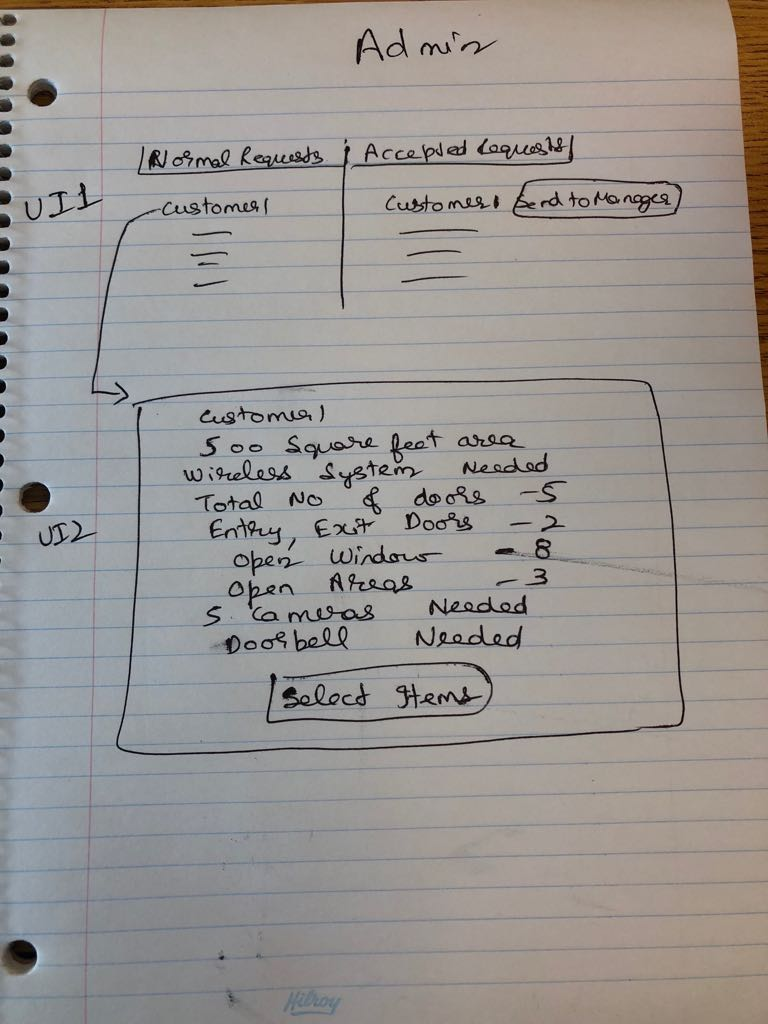 Admin
Normal Requests Accepted Requests
UI1
Customer1 Customer1 Send to Manager
Customer1
500 Square feet area
Wireless System Needed
Total No of doors - 5
Entry, Exit Doors - 2
UI2
Open Window - 8
Open Areas - 3
5 Cameras Needed
Doorbell Needed
Select Items
Hilroy